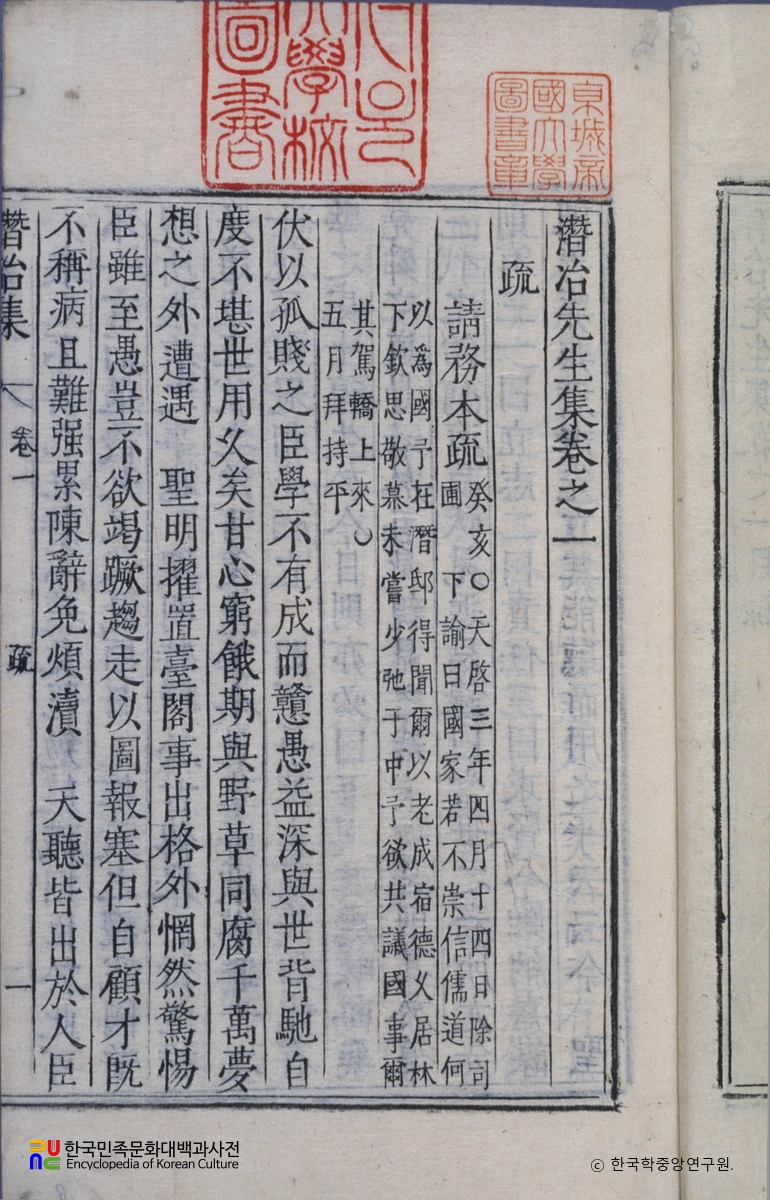 京城帝
國大學
圖書章
大學校
圖書
潛冶先生集卷之一
疏
請務本疏
癸亥○天啓三年四月十四日除司
圃 下諭曰國家若不崇信儒道何
以爲國予在潛邸得聞爾以老成宿德久居林
下欽思敬慕未嘗少弛于中予欲共議國事爾
其駕轎上來○
五月拜持平
伏以孤賤之臣學不有成而戇愚益深與世背馳自
度不堪世用久矣甘心窮餓期與野草同腐千萬夢
想之外遭遇 聖明擢置臺閣事出格外惘然驚惕
臣雖至愚豈不欲竭蹶趨走以圖報塞但自顧才旣
不稱病且難强累陳辭免煩瀆 天聽皆出於人臣
潛冶集 卷一 疏 一
한국민족문화대백과사전
Encyclopedia of Korean Culture
ⓒ 한국학중앙연구원.